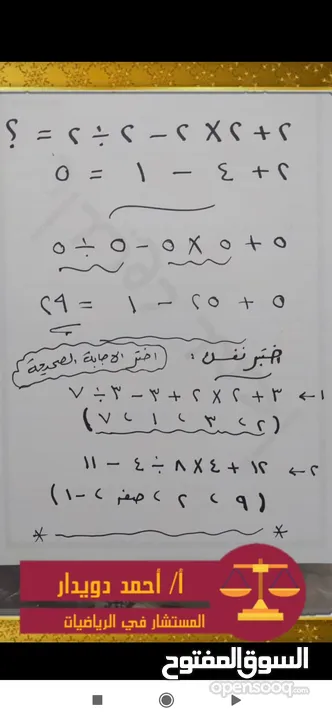 ٢ + ٢ × ٢ − ٢ ÷ ٢ = ؟
٢ + ٤ − ١ = ٥
٥ + ٥ × ٥ − ٥ ÷ ٥
٥ + ٢٥ − ١ = ٢٩
ختبر نفسك : (اختر الاجابة الصحيحة)
١ ← ٣ + ٢ × ٢ + ٣ − ٣ ÷ ٧
(٢ ، ٣ ، ١ ، ٧)
٢ ← ١٢ + ٤ × ٨ ÷ ٤ − ١١
(٩ ، ٢ ، صفر ، -١)
أ/ أحمد دويدار
المستشار في الرياضيات
السوق المفتوح
opensooq.com